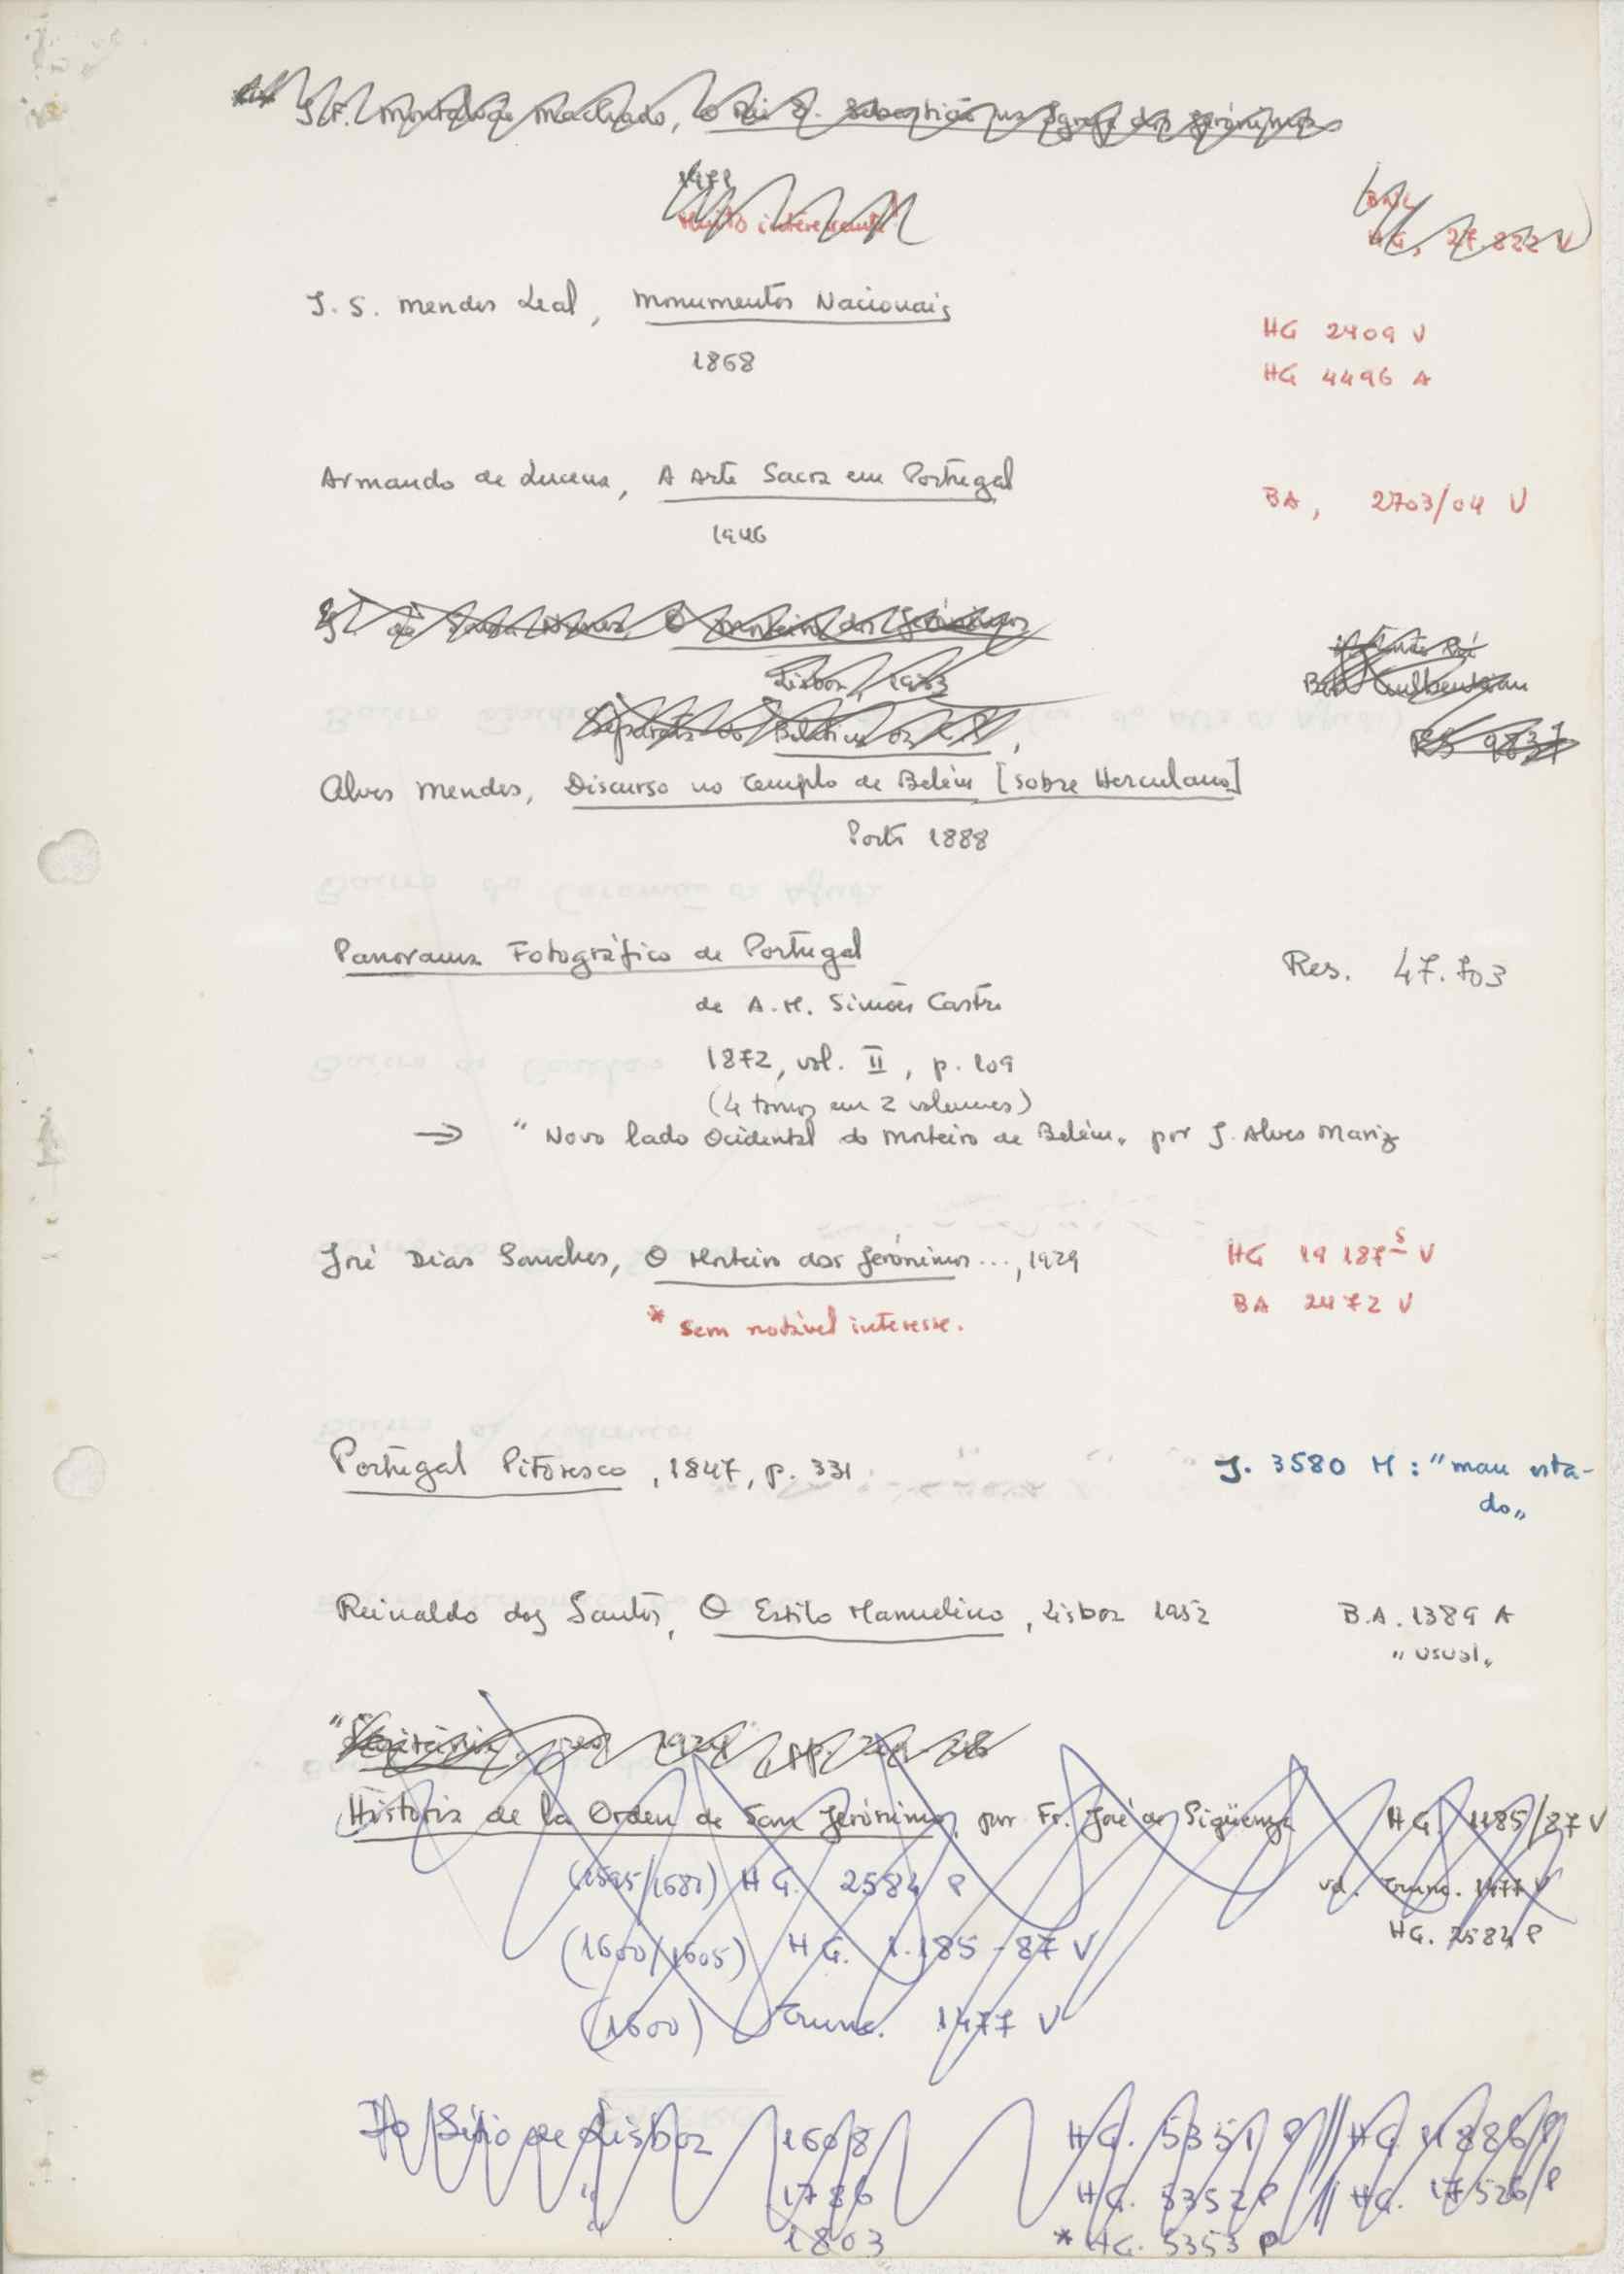 J.F. Montalvão Machado, O Rei D. Sebastião na Igreja dos Jerónimos
Muito interessante
HG, 27.822 V
J. S. Mendes Leal, Monumentos Nacionais
1868
HG 2409 V
HG 4496 A
Armando de Lucena, A Arte Sacra em Portugal
1946
BA, 2703/04 V
O Mosteiro dos Jerónimos
Lisboa, 1953
Gulbenkian
Separata do Boletim
Alves Mendes, Discurso no Templo de Belém [sobre Herculano]
Porto 1888
Panorama Fotográfico de Portugal
Res. 47.703
de A.M. Simões Castro
1872, vol. II, p. 109
(4 tomos em 2 volumes)
→ "Novo lado Ocidental do Mosteiro de Belém" por J. Alves Mariz
José Dias Sanches, O Mosteiro dos Jerónimos..., 1929
HG 19 187 5 V
BA 2472 V
* sem notável interesse.
Portugal Pitoresco, 1847, p. 331
J. 3580 M: "mau esta-
do"
Reinaldo dos Santos, O Estilo Manuelino, Lisboa 1952
B.A. 1389 A
"usual"
Historia de la Orden de San Jerónimo, por Fr. José de Sigüenza
HG. 1185/87 V
(1595/1681) HG. 2584 P
vd. Trunc. 1477 V
HG. 2584 P
(1600/1605) HG. 1.185-87 V
(1600) Trunc. 1477 V
Do Sítio de Lisboa 1608 HG. 5351 P // HG. 11886 P
" 1786 HG. 5352 P // HG. 17526 P
" 1803 * HG. 5353 P